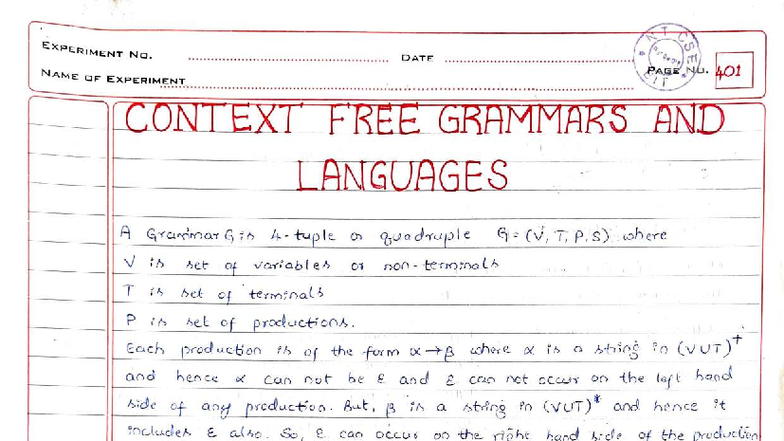 EXPERIMENT NO. DATE
NAME OF EXPERIMENT PAGE NO. 401
CONTEXT FREE GRAMMARS AND
LANGUAGES
A Grammar G is 4-tuple or quadruple G = (V, T, P, S) where
V is set of variables or non-terminals
T is set of terminals
P is set of productions.
Each production is of the form α→β where α is a string in (VUT)⁺
and hence α can not be ε and ε can not occur on the left hand
side of any production. But, β is a string in (VUT)* and hence it
includes ε also. So, ε can occur on the right hand side of the production